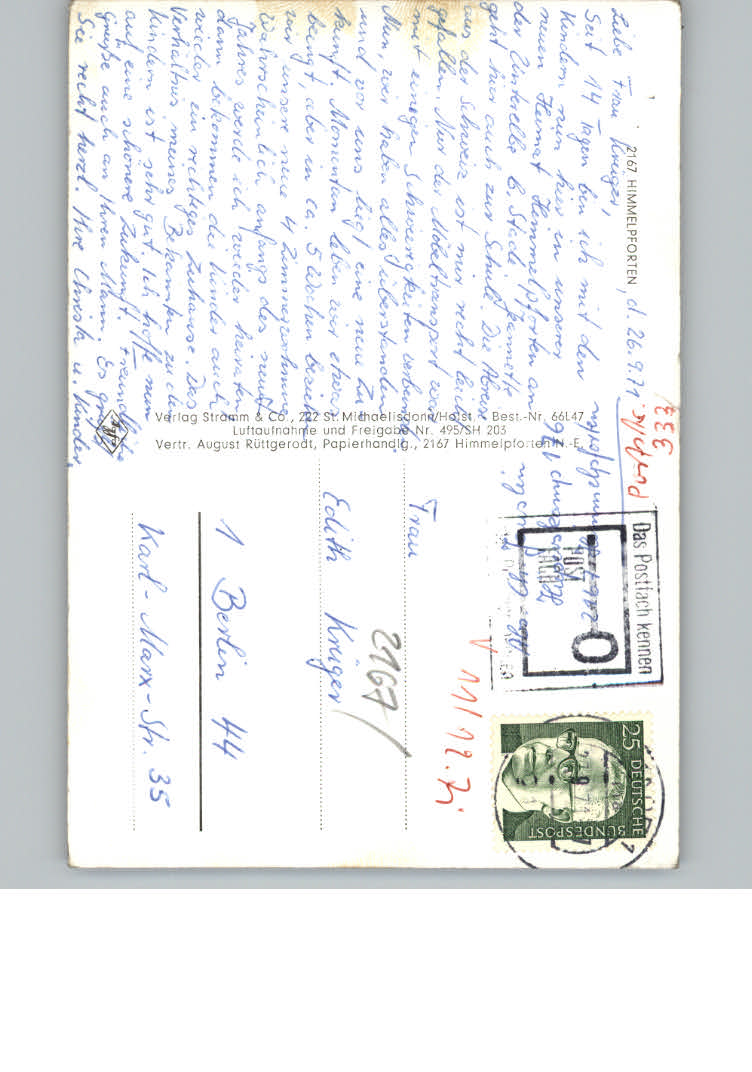 2167 HIMMELPFORTEN, d. 26.9.71
Liebe Frau Krüger,
Seit 14 Tagen bin ich mit den
Kindern nun hier in unserer
neuen Heimat Himmelpforten an
der Unterelbe b. Stade. Jeanette
geht hier auch zur Schule. Die Abreise
aus der Schweiz ist mir recht leicht
gefallen. Nur der Möbeltransport war
mit einigen Schwierigkeiten verbunden.
Nun, wir haben alles überstanden
und vor uns liegt eine neue Zu-
kunft. Momentan leben wir etwas
beengt, aber in ca. 5 Wochen beziehen
wir unsere neue 4 Zimmerwohnung.
Wahrscheinlich anfangs des neuen
Jahres werde ich wieder heiraten,
dann bekommen die Kinder auch
wieder ein richtiges Zuhause. Das
Verhältnis meines Bekannten zu den
Kindern ist sehr gut. Ich hoffe nun
auf eine schönere Zukunft. Freundliche
Grüße auch an Ihren Mann. Es grüßt
Sie recht herzl. Ihre Christa u. Kinder
Verlag Stramm & Co., 222 St. Michaelisdonn/Holst. - Best.-Nr. 66L47
Luftaufnahme und Freigabe Nr. 495/SH 203
Vertr. August Rüttgerodt, Papierhandlg., 2167 Himmelpforten N.-E.
Agfa
Das Postfach kennen
POST
0
25 DEUTSCHE
BUNDESPOST
11/12.
Frau
Edith Krüger
2167/
1 Berlin 44
Karl-Marx-Str. 35